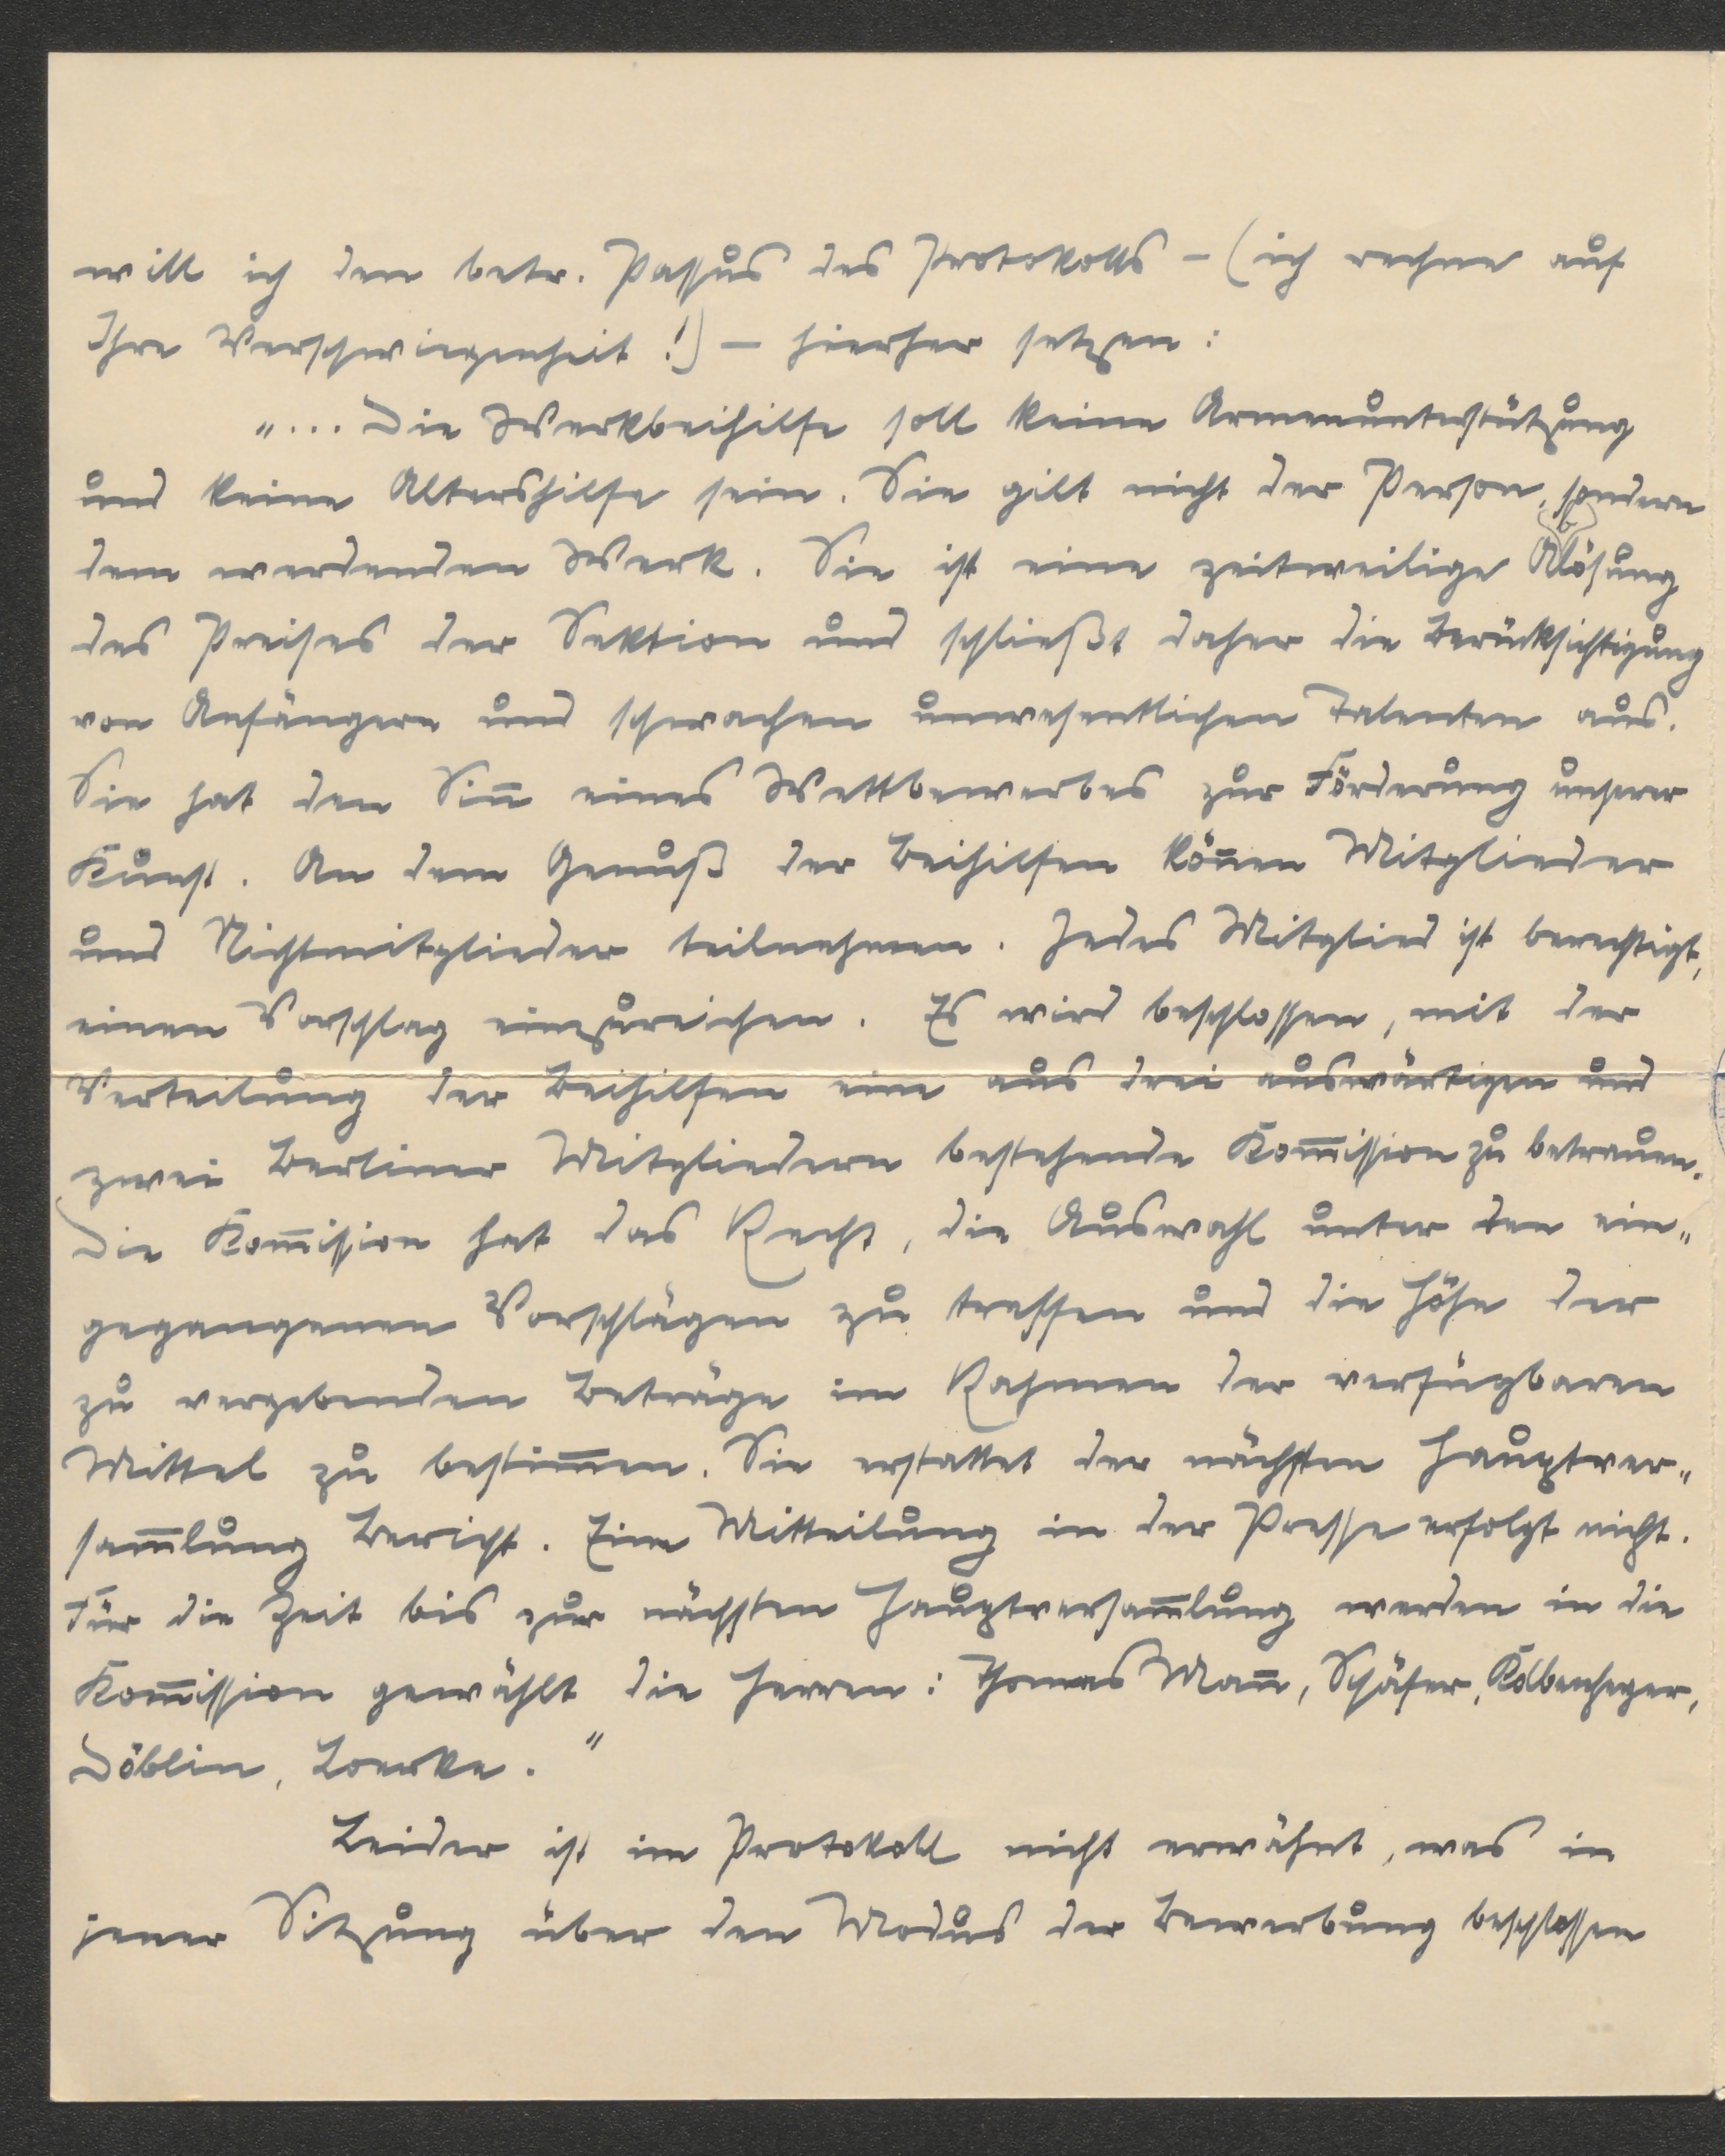 will ich den betr. Passus des Protokolls – (ich rechne auf
Ihre Verschwiegenheit!) – hierher setzen:
"... Die Werkbeihilfe soll keine Armenunterstützung
und keine Altershilfe sein. Sie gilt nicht der Person, sondern
dem werdenden Werk. Sie ist eine zeitweilige Ablösung
des Preises der Sektion und schließt daher die Berücksichtigung
von Anfängern und schwachen unwesentlichen Talenten aus.
Sie hat den Sin̅ eines Wettbewerbes zur Förderung unserer
Kunst. An dem Genuß der Beihilfen kön̅en Mitglieder
und Nichtmitglieder teilnehmen. Jedes Mitglied ist berechtigt,
einen Vorschlag einzureichen. Es wird beschlossen, mit der
Verteilung der Beihilfen eine aus drei auswärtigen und
zwei Berliner Mitgliedern bestehende Kom̅ission zu betrauen.
Die Kom̅ission hat das Recht, die Auswahl unter den ein-
gegangenen Vorschlägen zu treffen und die Höhe der
zu vergebenden Beträge im Rahmen der verfügbaren
Mittel zu bestim̅en. Sie erstattet der nächsten Hauptver-
sam̅lung Bericht. Eine Mitteilung in der Presse erfolgt nicht.
Für die Zeit bis zur nächsten Hauptversam̅lung werden in die
Kom̅ission gewählt die Herren: Thomas Man̅, Schäfer, Kolbenheyer,
Döblin, Loerke."
Leider ist im Protokoll nicht erwähnt, was in
jener Sitzung über den Modus der Bewerbung beschlossen